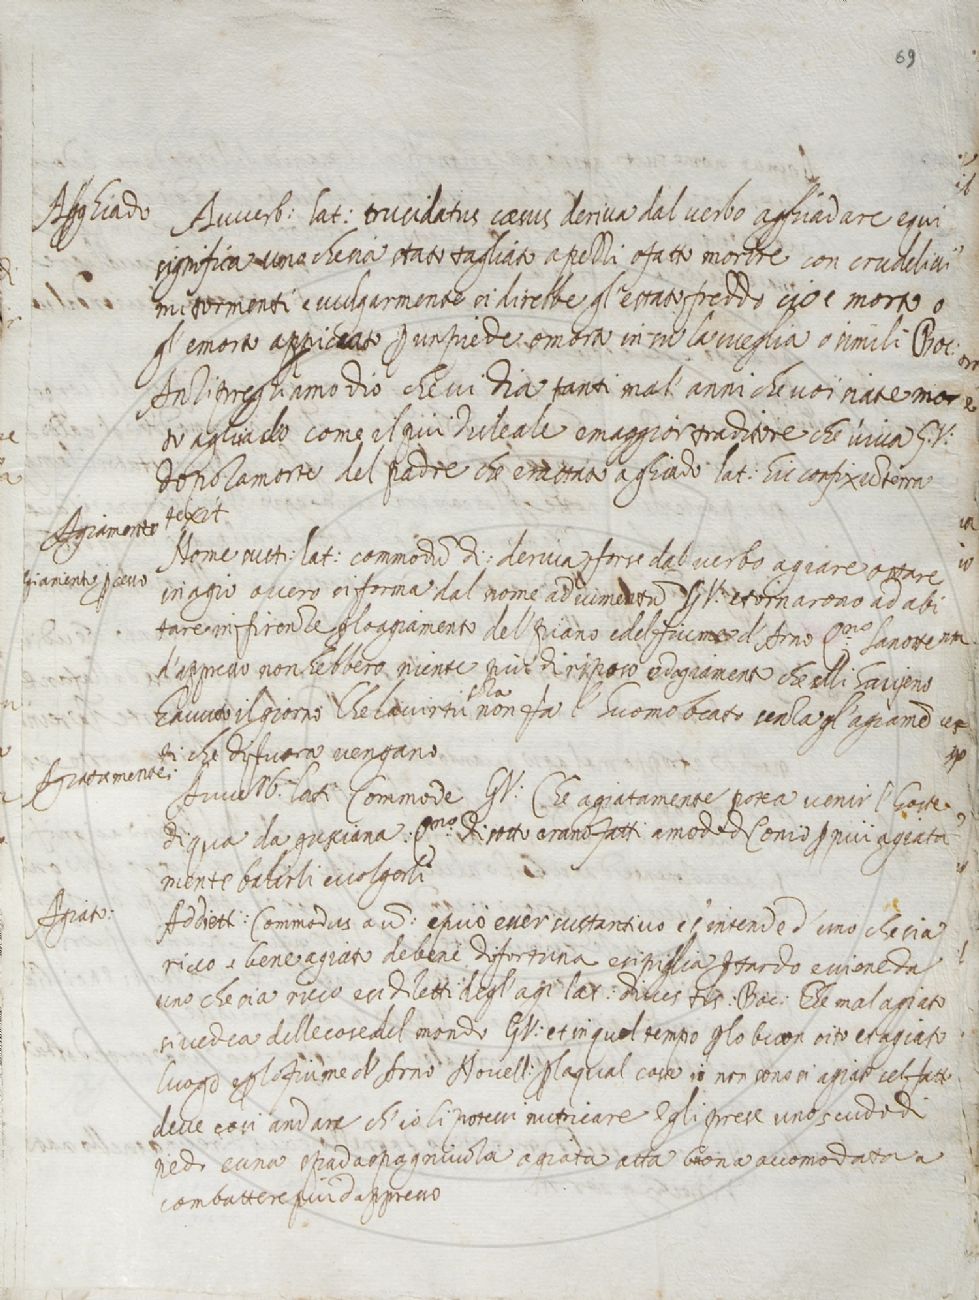 69
Agghiado
Avverb: lat: trucidatus cæsus deriva dal verbo agghiadare e qui
significa uno che sia stato tagliato a pezzi o fatto morire con crudelissi
mi tormenti e vulgarmente si direbbe gl'è stato freddo cioè morto o
gl'è morto appiccato p un piede o morto in su la veglia o simili Boc:
Anzi preghiamo dio che vi dia tanti mal'anni che voi siate mor
to aghiado come il piu disleale e maggior traditore che viva G: V:
dopo la morte del padre che era stato aghiado lat: hic confixũ terra
texit
Agiamento
Nome sust: lat: commodũ di: deriva forse dal verbo agiare o stare
in agio overo si forma dal nome G V: e tornarono ad abi
tare in firenze p lo agiamento del piano e del fiume d'Arno la notte
d'appresso non hebbero niente piu di riposo ed agiamento che elli havieno
havuto il giorno Che la virtù sola non fa l'huomo beato senza gl'agiamẽ
ti che di fuora vengano
Agiatamente:
Avverb: lat: Commode GV: Che agiatamente potea venir l'hoste
di qua da gusciana: di sotto erano fatti a modo d p piu agiata
mente balirli e volgerli
Agiato:
Addiett: Commodus a ũ: e può esser sustantivo e s'intende d'uno che sia
ricco e bene agiato de beni di fortuna e si piglia p tardo e viene da
uno che sia ricco e si diletti degl'agi lat: dives tis: Boc: Che mal agiato
si vedea delle cose del mondo GV: et in quel tempo p lo buon sito et agiato
luogo e p lo fiume d'Arno Novell: p la qual cosa io non sono si agiato
deve cosi andare ch'io li potessi nutricare Egli prese uno scudo di
piedi e una spada spagniuola agiata atta buona accomodata a
combattere piu d'appresso